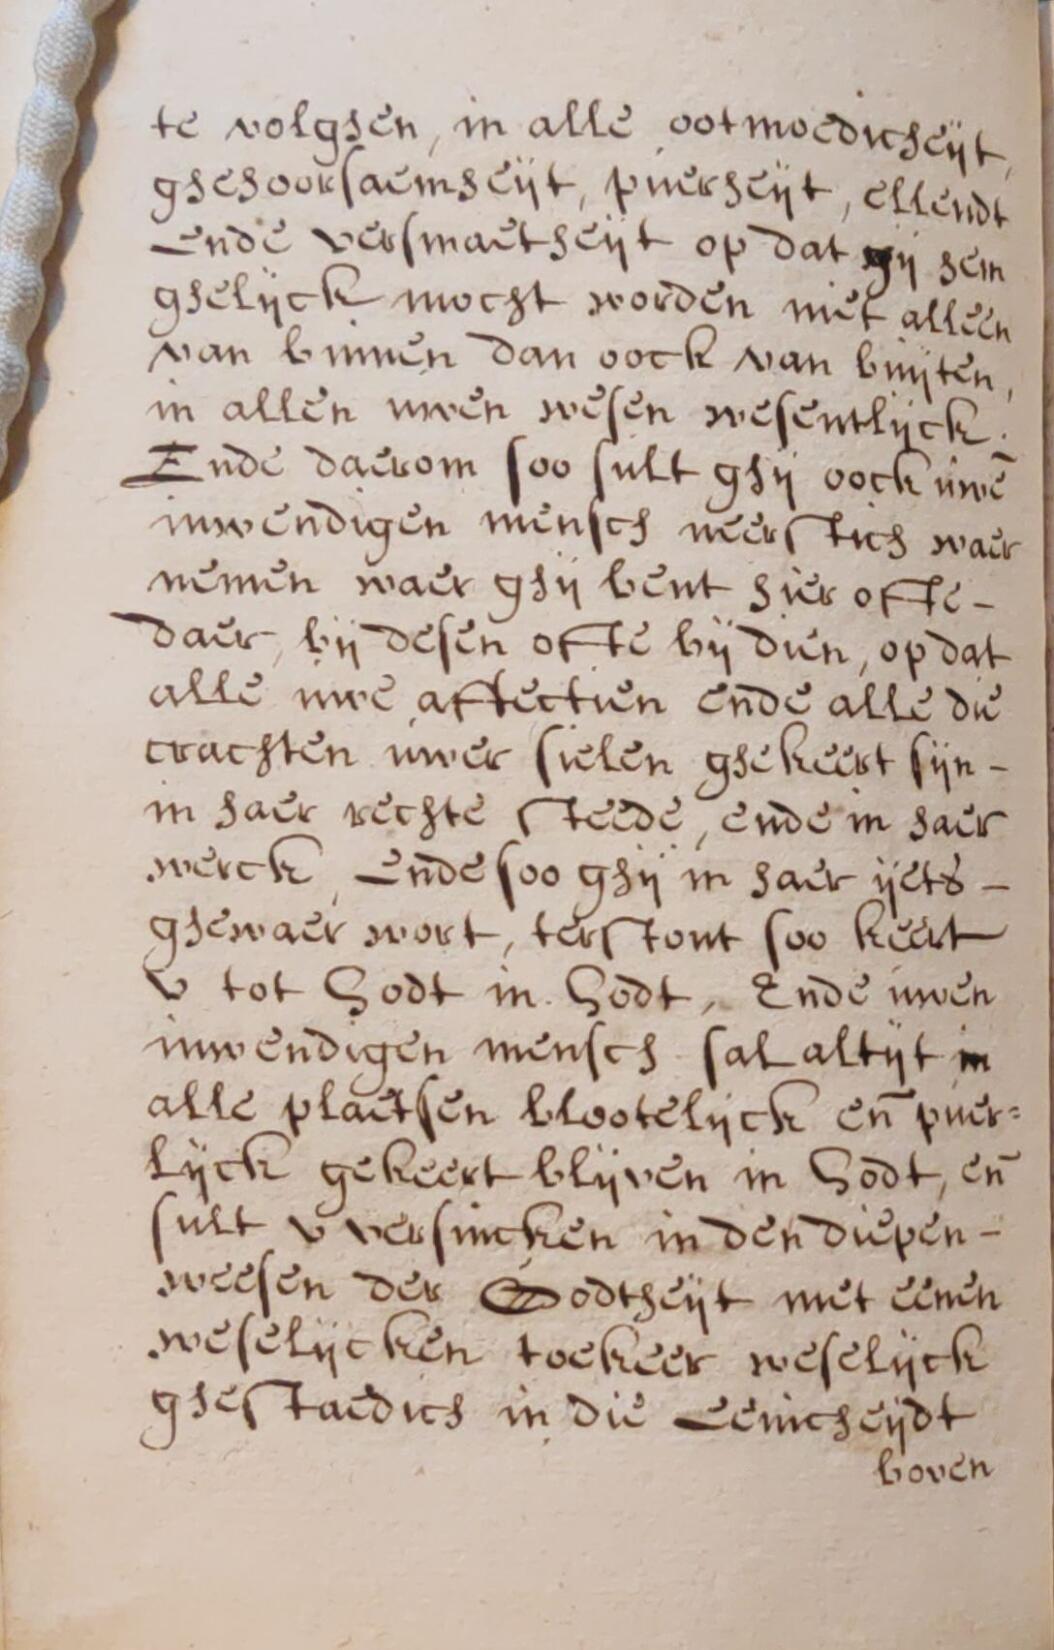 te volghen, in alle ootmoedicheÿt,
ghehoorsaemheÿt, puerheÿt, ellendt
Ende versmaetheÿt op dat gÿ hem
ghelÿck mocht worden niet alleen
van binnen dan oock van buÿten,
in allen uwen wesen wesentlÿck.
Ende daerom soo sult ghÿ oock uwē
inwendigen mensch neerstich waer
nemen waer ghÿ bent hier ofte-
daer, bÿ desen ofte bÿ dien, op dat
alle uwe affectien ende alle die
crachten uwer sielen ghekeert sÿn-
in haer rechte steede, ende in haer
werck, Ende soo ghÿ in haer ÿets-
ghewaer wort, terstont soo keert
v tot Godt in Godt, Ende uwen
inwendigen mensch sal altÿt in
alle plaetsen blootelÿck en̄ puer=
lÿck gekeert blÿven in Godt, en̄
sult v versincken in den diepen-
weesen der Godtheÿt met eenen
weselÿcken toekeer weselÿck
ghestaedich in die Eenicheÿdt
boven